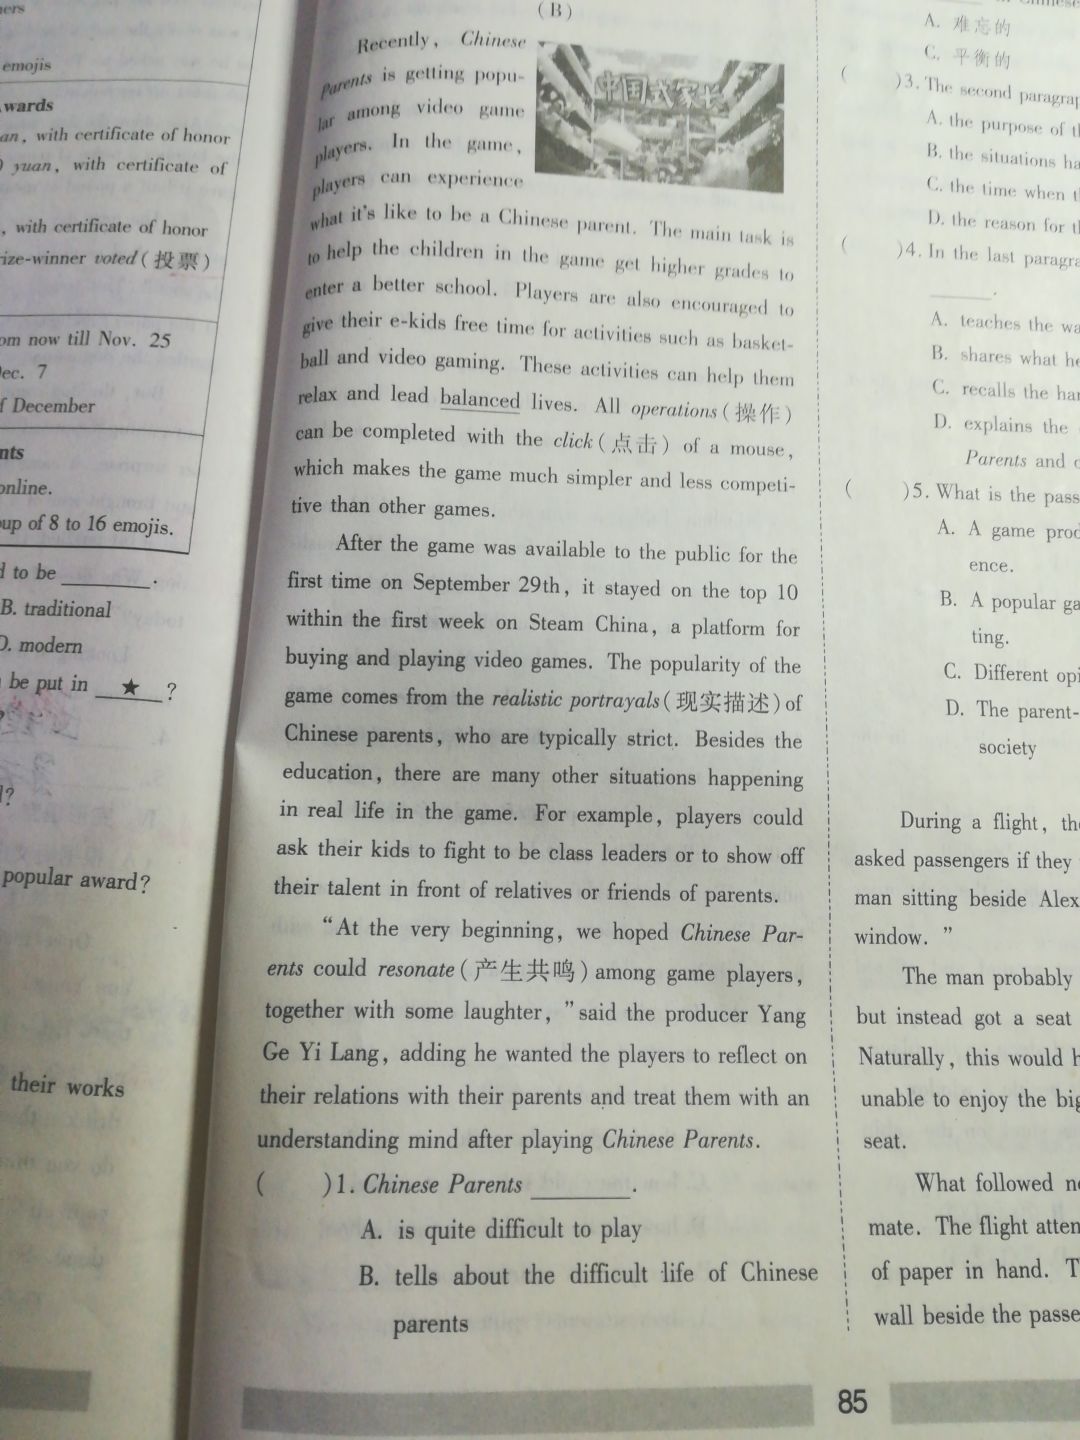 ners
emojis
wards
an, with certificate of honor
yuan, with certificate of
, with certificate of honor
ize-winner voted(投票)
om now till Nov. 25
ec. 7
f December
nts
online.
up of 8 to 16 emojis.
d to be ______.
B. traditional
D. modern
be put in __★__?
?
l?
popular award?
their works
(B)
Recently, Chinese
Parents is getting popu-
lar among video game
players. In the game,
players can experience
中国式家长
what it's like to be a Chinese parent. The main task is
to help the children in the game get higher grades to
enter a better school. Players are also encouraged to
give their e-kids free time for activities such as basket-
ball and video gaming. These activities can help them
relax and lead balanced lives. All operations(操作)
can be completed with the click(点击) of a mouse,
which makes the game much simpler and less competi-
tive than other games.
After the game was available to the public for the
first time on September 29th, it stayed on the top 10
within the first week on Steam China, a platform for
buying and playing video games. The popularity of the
game comes from the realistic portrayals(现实描述)of
Chinese parents, who are typically strict. Besides the
education, there are many other situations happening
in real life in the game. For example, players could
ask their kids to fight to be class leaders or to show off
their talent in front of relatives or friends of parents.
"At the very beginning, we hoped Chinese Par-
ents could resonate(产生共鸣) among game players,
together with some laughter," said the producer Yang
Ge Yi Lang, adding he wanted the players to reflect on
their relations with their parents and treat them with an
understanding mind after playing Chinese Parents.
( )1. Chinese Parents ______.
A. is quite difficult to play
B. tells about the difficult life of Chinese
parents
A. 难忘的
C. 平衡的
( )3. The second paragrap
A. the purpose of t
B. the situations ha
C. the time when t
D. the reason for t
( )4. In the last paragra
______.
A. teaches the wa
B. shares what he
C. recalls the har
D. explains the
Parents and c
( )5. What is the pass
A. A game proc
ence.
B. A popular ga
ting.
C. Different opi
D. The parent-
society
During a flight, the
asked passengers if they
man sitting beside Alex
window."
The man probably
but instead got a seat
Naturally, this would h
unable to enjoy the big
seat.
What followed ne
mate. The flight atten
of paper in hand. T
wall beside the passe
85